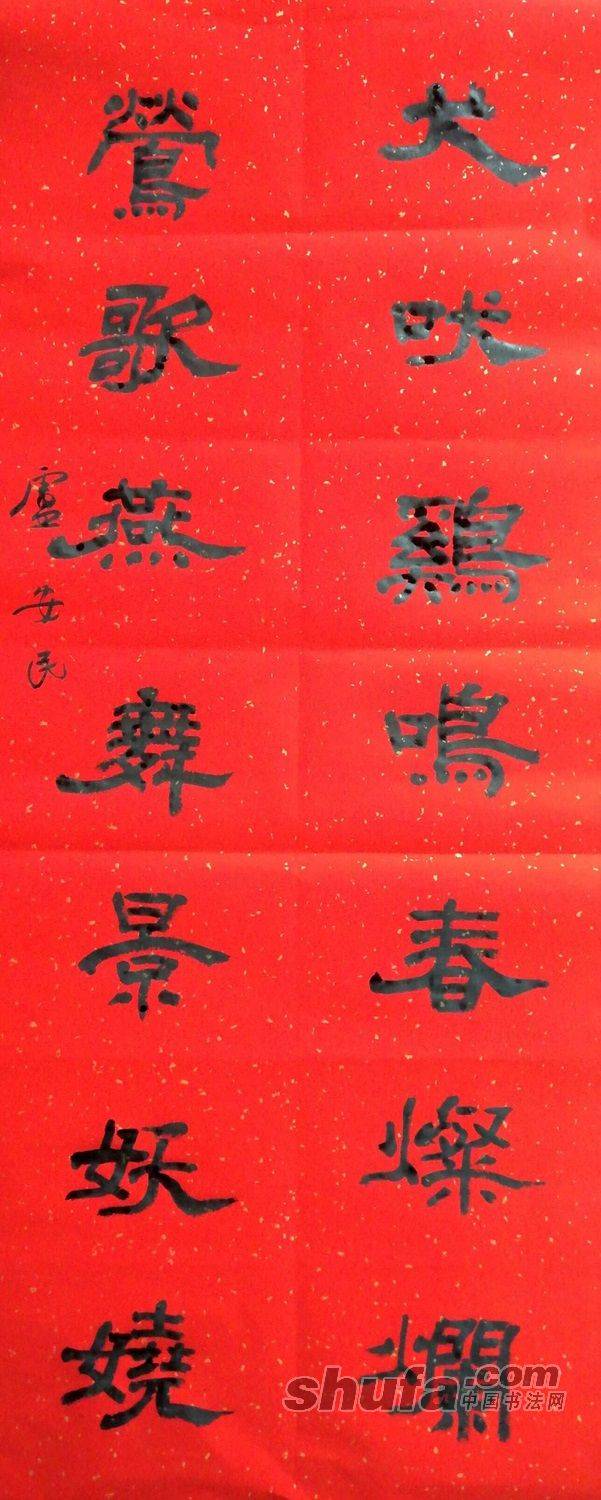 犬吠鷄鳴春燦爛
鶯歌燕舞景妖嬈
盧安民
shufa.com
中国书法网